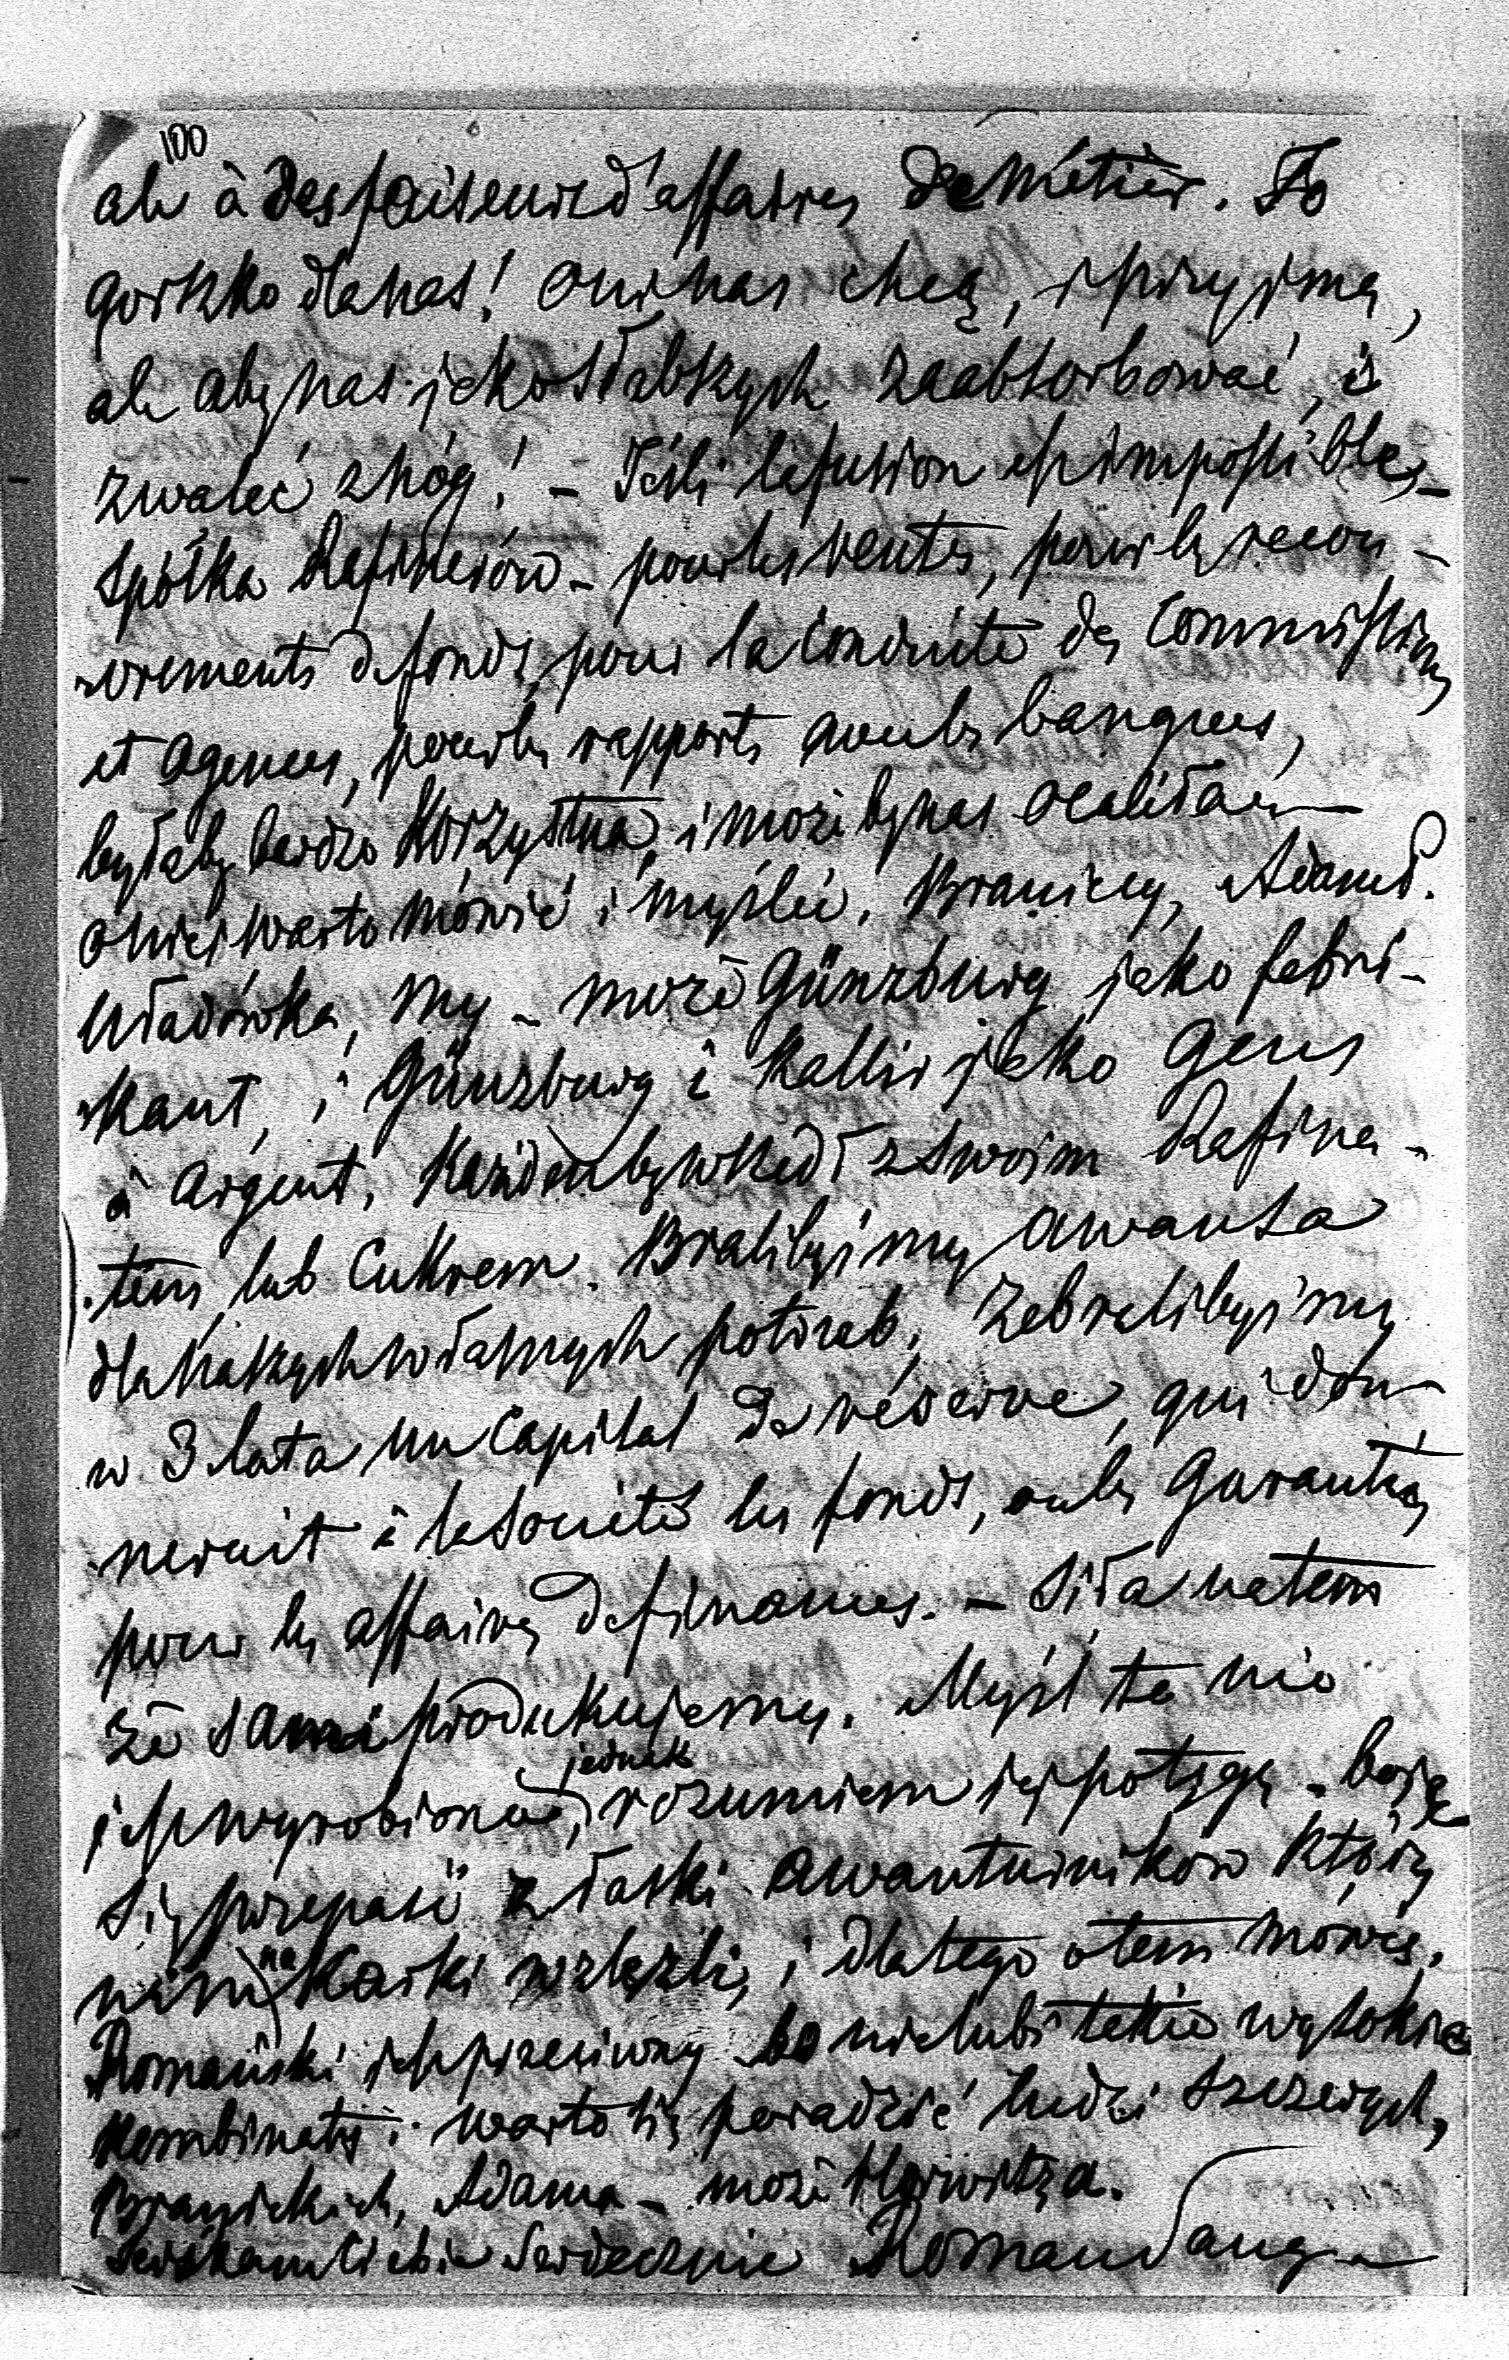 100
ale à des faiseurs d'affaires de métier. To
gorzko dla nas! Oni nas chcą, i przyjmą,
ale aby nas jako słabszych zaabsorbować, i
zwalić z nóg! – Jeśli la fusion est impossible, –
Spółka Rafinerów – pour les ventes, pour les recou-
vrements de fonds, pour la conduite des Commissions
et agences, pour les rapports avec les banques,
byłaby bardzo korzystna, i może by nas ocaliła –
o niej warto mówić i myśleć. Braniccy, Adam S.
Uładówka, my – może Günzburg jako fabri-
kant, i Günzburg i Kallir jako gens
à argent. Każden by wszedł z swoim Rafina-
tem, lub Cukrem. Bralibyśmy awansa
dla naszych własnych potrzeb, zebralibyśmy
w 3 lata un Capital de réserve, qui don-
nerait à la Société les fonds, ou les garanties
pour les affaires de finances. – Siła na tem
że sami produkujemy. Myśl ta nie
jest wyrobiona, jednak rozumiem jej potęgę – boję
się przepaść z łaski awanturników którzy
nam na karki wzleźli, i dlatego o tem mówię.
Romański jest przeciwny bo nie lubi takie wysokie
kombinacje. warto się poradzić ludzi szczerych,
Branickich, Adama – może Horwitza.
Ściskam Ciebie Serdecznie Roman Sang